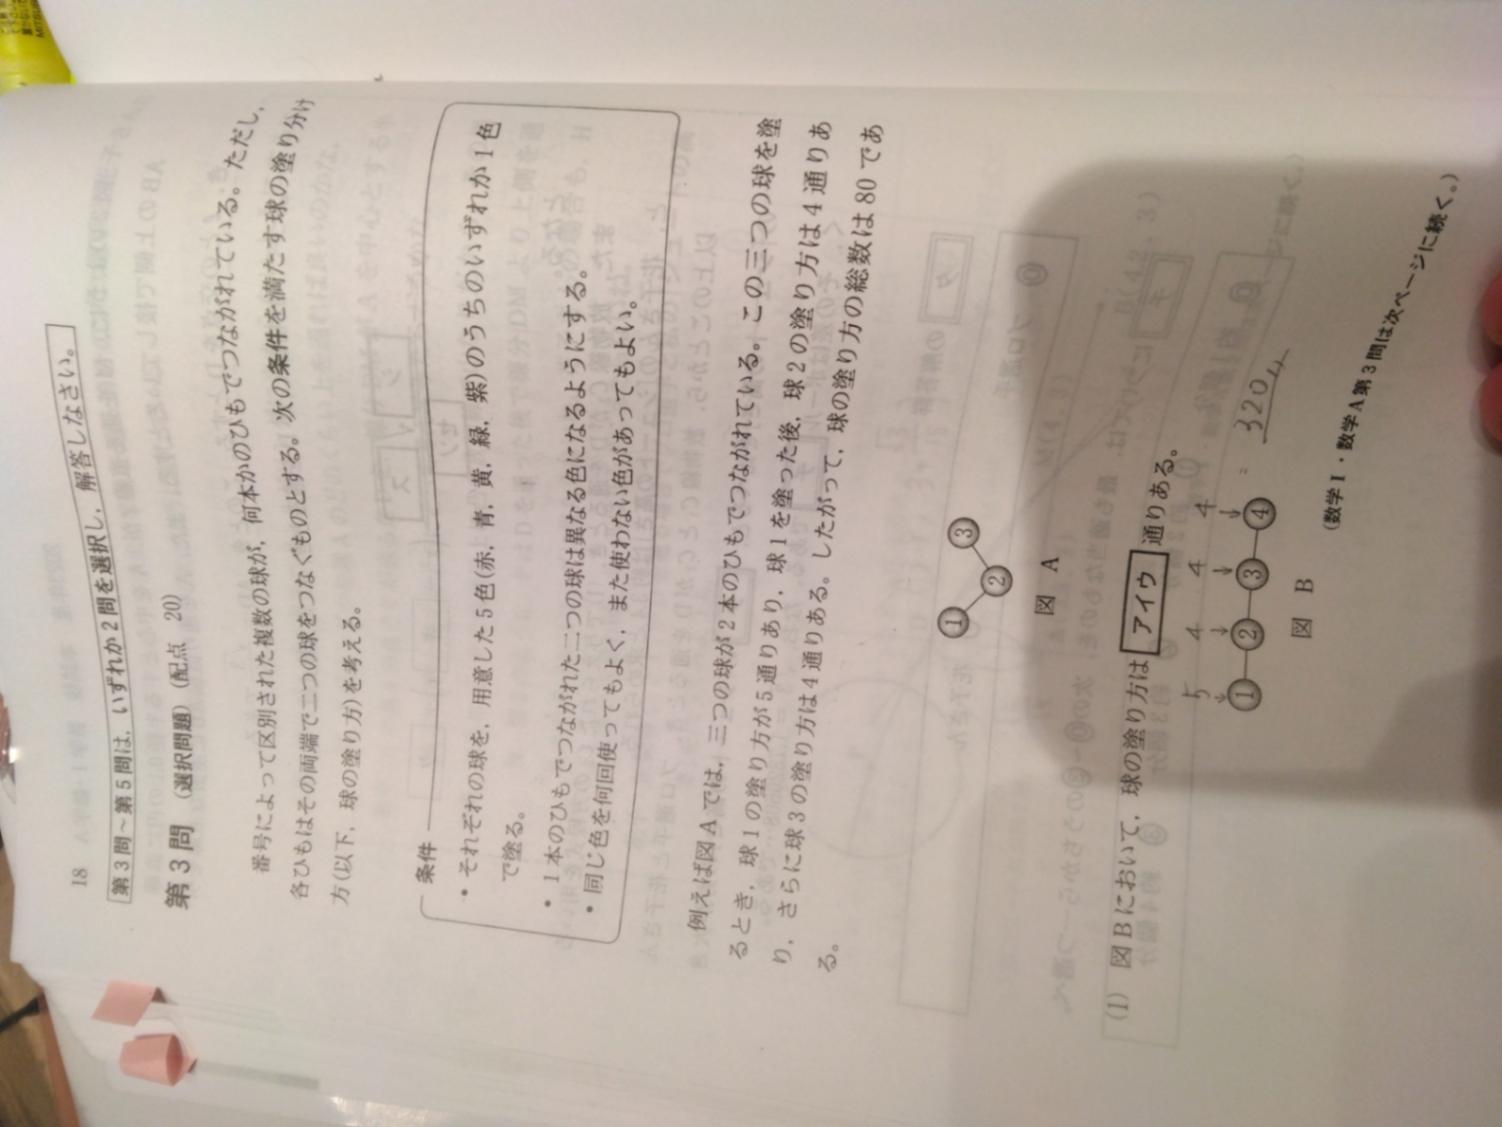 18
第3問～第5問は，いずれか2問を選択し，解答しなさい。
第3問 (選択問題)(配点 20)
番号によって区別された複数の球が，何本かのひもでつながれている。ただし，
各ひもはその両端で二つの球をつなぐものとする。次の条件を満たす球の塗り分け
方(以下，球の塗り方)を考える。
条件
・それぞれの球を，用意した5色(赤，青，黄，緑，紫)のうちのいずれか1色
で塗る。
・1本のひもでつながれた二つの球は異なる色になるようにする。
・同じ色を何回使ってもよく，また使わない色があってもよい。
例えば図Aでは，三つの球が2本のひもでつながれている。この三つの球を塗
るとき，球1の塗り方が5通りあり，球1を塗った後，球2の塗り方は4通りあ
り，さらに球3の塗り方は4通りある。したがって，球の塗り方の総数は80であ
る。
① ② ③
図 A
(1) 図Bにおいて，球の塗り方は アイウ 通りある。
5 4 4 4
↓ ↓ ↓ ↓
① ② ③ ④ : 320
図 B
(数学Ⅰ・数学A第3問は次ページに続く。)